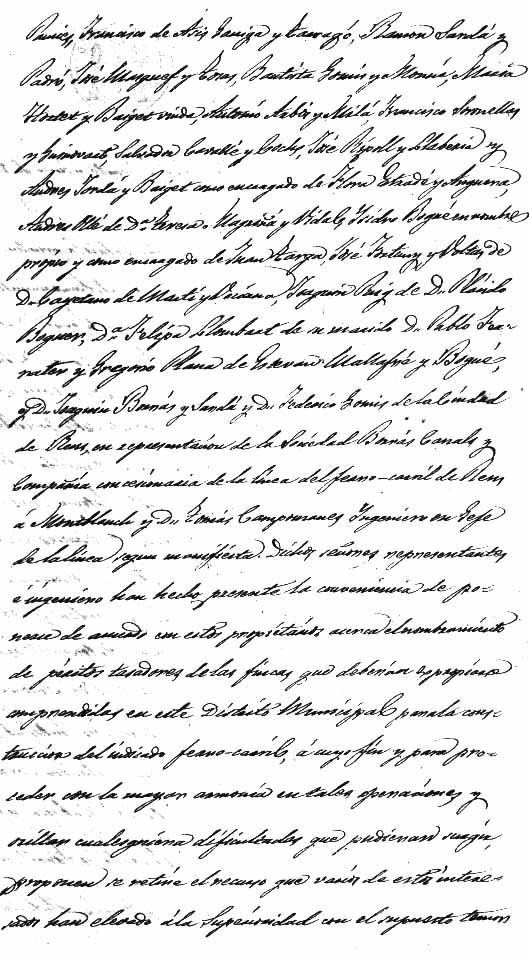 Francisco de Asís y Tarragó, Ramon Sardá y
Padró, José y Bautista Gomis y María
y Baiget viuda, Antonio y Milá, Francisco Ornellas
y Salvador Cavallé y José Ripoll y Lleberia y
Andres Jordá y Baiget como encargado de Flora Estradé y Anguera,
Andres de Da. Teresa y Vidal, Isidro Bogué en nombre
propio y como encargado de Juan José Fortuny y de
Dn. Cayetano de Martí y Joaquin Puig de Dn. Plácido
Da. Felipa Llombart de su marido Dn. Pablo
y Gregorio Plana de Estevan Mallafré y Bogué,
y Dn. Joaquin Borrás y Sardá y Dn. Federico Gomis de la Ciudad
de Reus, en representacion de la Sociedad Borrás Canals y
Compañia concesionaria de la linea del ferro-carril de Reus
á Montblanch y Dn. Tomás Campomanes Ingeniero en Gefe
de la linea segun manifiesta. Dichos señores representantes
é ingeniero han hecho presente la conveniencia de po-
nerse de acuerdo con estos propietarios acerca el nombramiento
de péritos tasadores de las fincas que deberian espropiarse
comprendidas en este Distrito Municipal para la cons-
truccion del indicado ferro-carril, á cuyo fin y para pro-
ceder con la mayor armonia en tales operaciones y
orillar cualesquiera dificultades que pudieran surgir,
proponen se retire el recurso que varios de estos intere-
sados han elevado á la Superioridad con el supuesto